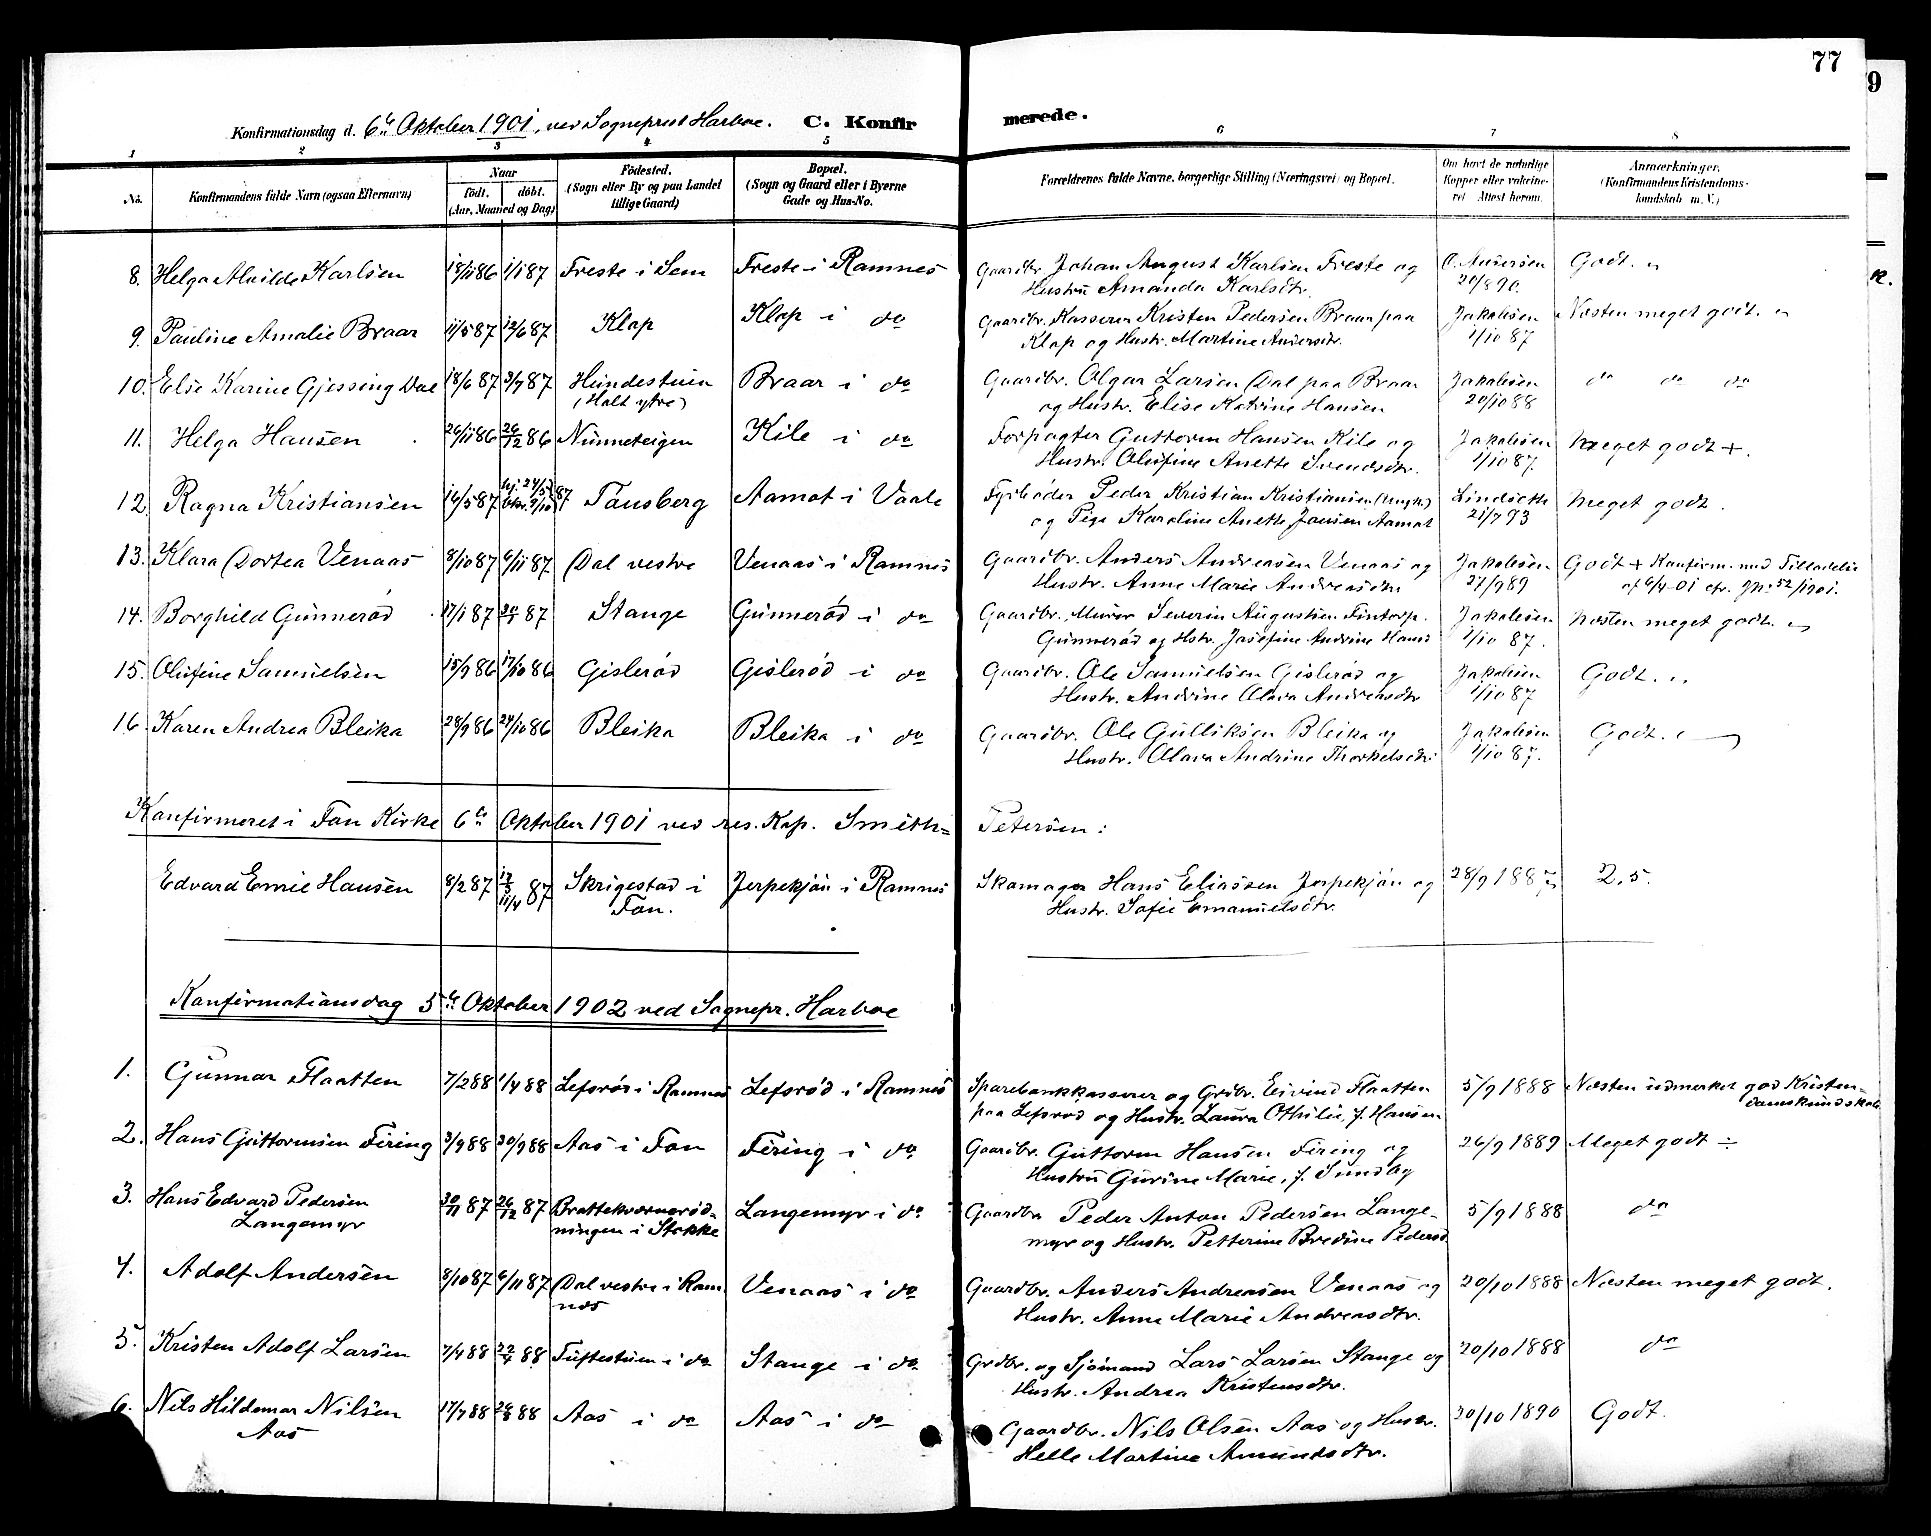 77
9
Konfirmationsdag d. 6te Oktober 1901, ved Sogneprest Harboe. C. Konfir merede.
1 2 3 4 5 6 7 8
No. Konfirmandens fulde Navn (ogsaa Efternavn) Naar født. døbt. (Aar, Maaned og Dag) Fødested. (Sogn eller By og paa Landet tillige Gaard) Bopæl. (Sogn og Gaard eller i Byerne Gade og Hus-No. Forældrenes fulde Navne, borgerlige Stilling (Næringsvei) og Bopæl. Om havt de naturlige Kopper eller vakcineret. Attest herom. Anmærkninger. (Konfirmandens Kristendomskundskab m. V.)
8. Helga Alvilde Karlsen 18/11 86 1/1 87 Freste i Sem Freste i Ramnes Gaardbr. Johan August Karlsen Freste og O. Andersen Godt.
Hustru Amanda Karlsdtr. 20/8 90.
9. Pauline Amalie Braar 11/5 87 12/6 87 Klop Klop i do Gaardbr. Kasserer Kristen Pedersen Braar paa Jakobsen Næsten meget godt.
Klop og Hustr. Martine Andersdtr. 1/10 87
10. Else Karine Gjessing Dal 18/6 87 3/7 87 Hundestuen Braar i do Gaardbr. Olgar Larsen Dal paa Braar Jakobsen do do do
(Holt ytre) og Hustr. Elise Katrine Hansen 20/10 88
11. Helga Hansen 26/11 86 26/12 86 Nunneteigen Kile i do Forpagter Guttorm Hansen Kile og Jakobsen Meget godt +.
Hustr. Olufine Anette Svendsdtr. 1/10 87.
12. Ragna Kristiansen 16/5 87 87 Tønsberg Aamot i Vaale Fyrbøder Peder Kristian Kristiansen Lindseth Meget godt.
og Pige Karoline Anette Jansen Aamot 21/7 93
13. Klara Dortea Venaas 8/10 87 6/11 87 Dal vestre Venaas i Ramnes Gaardbr. Anders Andreasen Venaas og Jakobsen Godt + Konfirm. med Tilladelse
Hustr. Anne Marie Andreasdtr 27/9 89 af 6/4-01 cfr. 52/1901.
14. Borghild Gunnerød 17/1 87 87 Stange Gunnerød i do Gaardbr. Murer Severin Augustsen Jakobsen Næsten meget godt.
Gunnerød og Hstr. Josefine Andrine Hansd 1/10 87.
15. Olufine Samuelsen 15/9 86 17/10 86 Gislerød Gislerød i do Gaardbr. Ole Samuelsen Gislerød og Jakobsen Godt.
Hustr. Andrine Olava Andreasdtr 1/10 87
16. Karen Andrea Bleika 28/9 86 24/10 86 Bleika Bleika i do Gaardbr. Ole Gulliksen Bleika og Jakobsen Godt.
Hustr. Olava Andrine Thorkelsdtr 1/10 87.
Konfirmeret i Fon Kirke 6te Oktober 1901 ved res. Kap. Smith-Petersen:
Edvard Emil Hansen 8/2 87 87 Skrigestad i Jerpekjøn i Ramnes Skomager Hans Eliassen Jerpekjøn og 28/9 1887 2,5.
Fon. Hustr. Sofie Emanuelsdtr.
Konfirmationsdag 5te Oktober 1902 ved Sognepr. Harboe
1. Gunnar Flaatten 7/2 88 1/4 88 Lefsrød i Ramnes Lefsrød i Ramnes Sparebankkasserer og Grdbr. Eivind Flaatten 5/9 1888 Næsten udmerket god Kristen-
paa Lefsrød og Hustr. Laura Othilie, f. Hansen domskundskab
2. Hans Guttormsen Firing 3/9 88 30/9 88 Aas i Fon Firing i do Gaardbr. Guttorm Hansen Firing og 26/9 1889 Meget godt ÷
Hustru Gurine Marie, f. Sundby
3. Hans Edvard Pedersen 30/11 87 26/12 87 Brattekværnerød- Langemyr i do Gaardbr Peder Anton Pedersen Lange- 5/9 1888 do
Langemyr ningen i Stokke myr og Hustr. Petterine Bredine Pedersd
4. Adolf Andersen 8/10 87 6/11 87 Dal vestre i Ram Venaas i do Gaardbr. Anders Andreasen Venaas og 20/10 1888 Næsten meget godt.
nes Hustr. Anne Marie Andreasdtr.
5. Kristen Adolf Larsen 7/4 88 22/4 88 Tuftestuen i do Stange i do Grdbr. og Sjømand Lars Larsen Stange og 20/10 1888 do
Hustr. Andrea Kristensdtr.
6. Nils Hildemar Nilsen 17/7 88 88 Aas i do Aas i do Gaardbr. Nils Olsen Aas og Hustr. 30/10 1890 Godt.
Aas Helle Martine Amundsdtr.